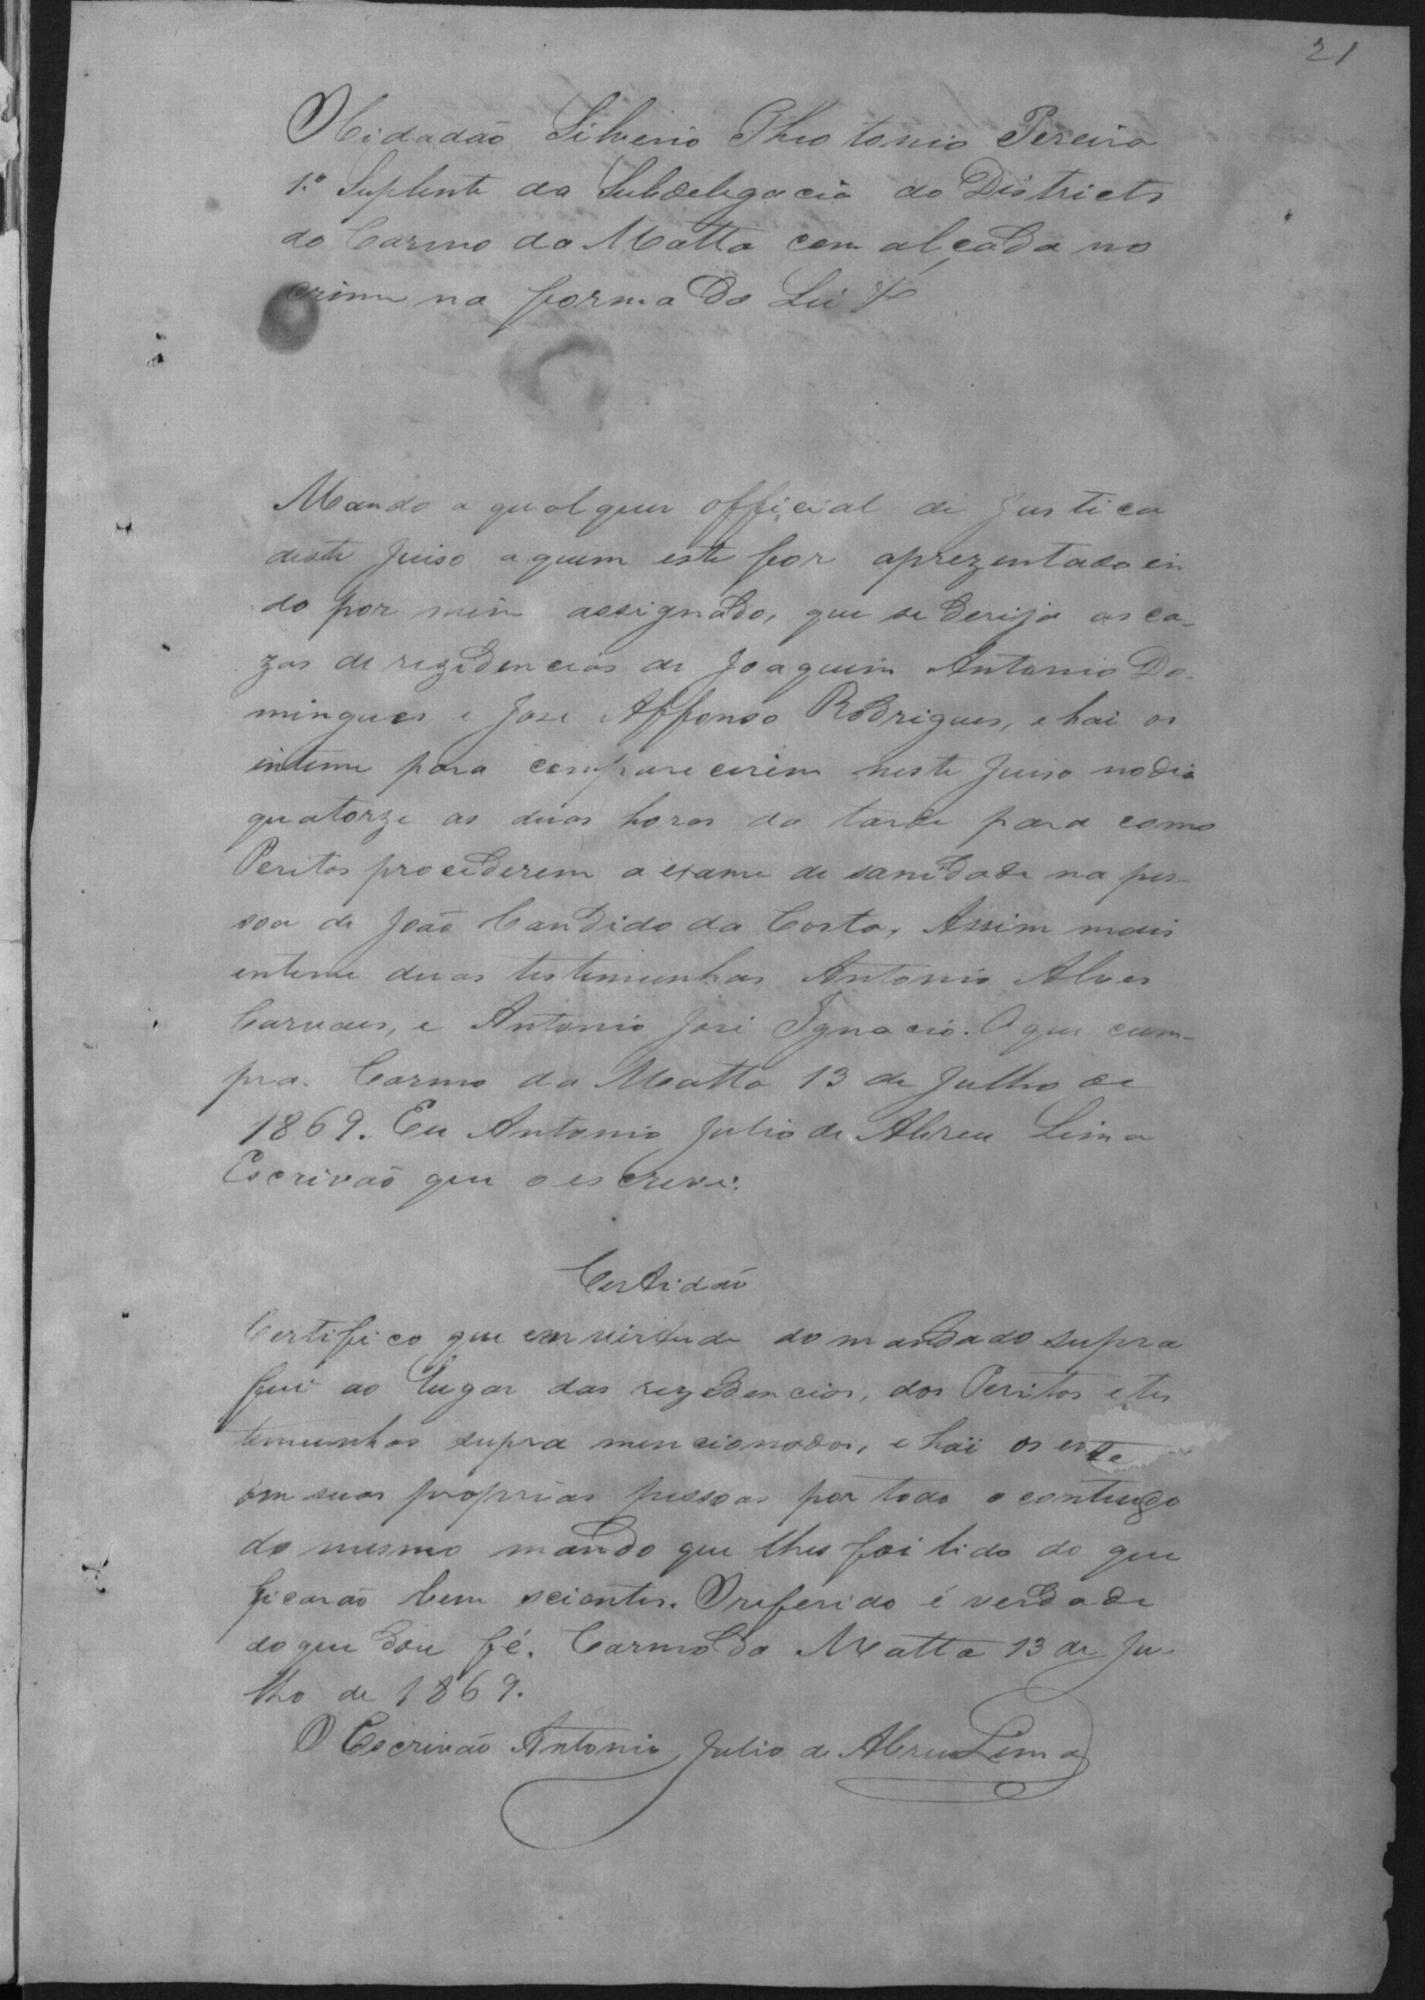 21
O Cidadão Silverio Theotonio Pereira
1.º Suplente da Subdelegacia do Districto
do Carmo da Matta com alçada no
crime na forma da Lei &
Mando a qualquer official de justica
deste Juiso aquem este for aprezentado in
do por mim assignado, que se derija as ca-
zas de rezidencias de Joaquim Antonio Do-
mingues e Jose Affonso Rodrigues, e hai os
inteme para comparecerem neste Juiso no dia
quatorze as duas horas da tarde para como
Peritos procederem a exame de sanidade na pes-
soa de João Candido da Costa, Assim mais
enteme duas testemunhas Antonio Alves
e Antonio José Ignacio. O que cum-
pra. Carmo da Matta 13 de Julho de
1869. Eu Antonio Julio de Abreu Lima
Escrivão que o escrevi.
Certidão
Certifico que em virtude do mandado supra
fui ao lugar das rezidencias, dos Peritos e tes
temunhas supra mencionados, e haï os
em suas proprias pessoas por todo o contiudo
do mesmo mando que lhes foi lido do que
ficarão bem scientes. O referido é verdade
do que dou fé. Carmo da Matta 13 de Ju-
lho de 1869.
O Escrivão Antonio Julio de Abreu Lima